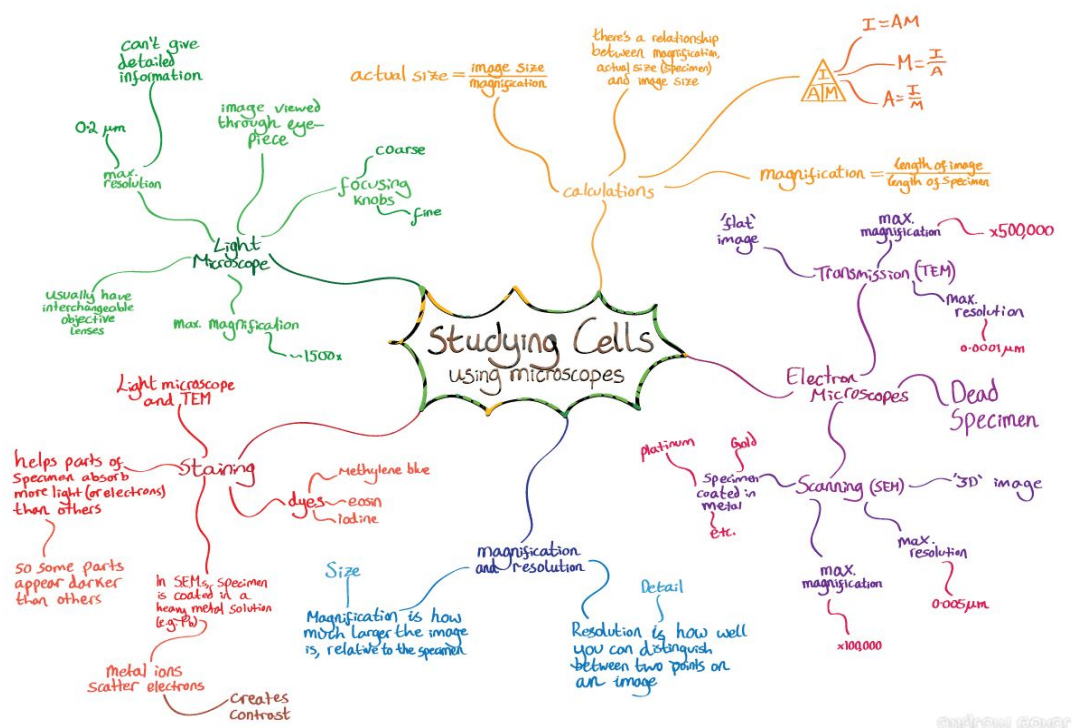 Studying Cells
using microscopes
Light
Microscope
can't give
detailed
information
0.2 μm
max.
resolution
image viewed
through eye-
piece
focusing
knobs
coarse
fine
usually have
interchangeable
objective
lenses
max. magnification
~1500x
calculations
actual size = image size
magnification
there's a relationship
between magnification,
actual size (specimen)
and image size
I
A M
I = AM
M = I/A
A = I/M
magnification = length of image
length of specimen
Electron
Microscopes
Dead
Specimen
Transmission (TEM)
'flat'
image
max.
magnification
x500,000
max.
resolution
0.0001μm
Scanning (SEM)
'3D' image
Specimen
coated in
metal
platinum
Gold
etc.
max.
resolution
0.005μm
max.
magnification
x100,000
magnification
and resolution
Size
Magnification is how
much larger the image
is, relative to the specimen
Detail
Resolution is how well
you can distinguish
between two points on
an image
Staining
Light microscope
and TEM
helps parts of
specimen absorb
more light (or electrons)
than others
so some parts
appear darker
than others
dyes
methylene blue
eosin
iodine
In SEMs, specimen
is coated in a
heavy metal solution
(e.g. Pb)
metal ions
scatter electrons
creates
contrast
andrew